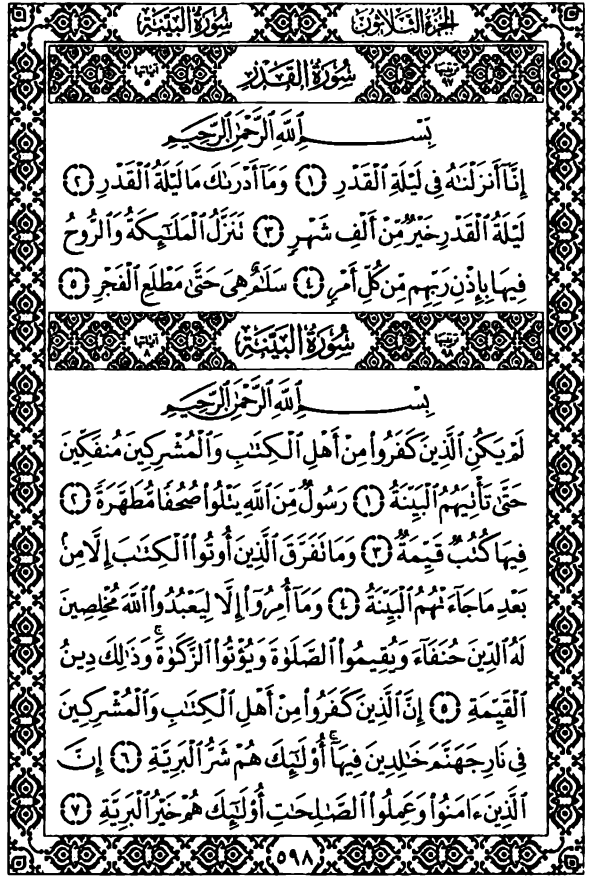 الجزء الثلاثون سورة البينة
ترتيبها ٩٧ سورة القدر آياتها ٥
بِسْمِ ٱللَّهِ ٱلرَّحْمَٰنِ ٱلرَّحِيمِ
إِنَّآ أَنزَلْنَٰهُ فِى لَيْلَةِ ٱلْقَدْرِ ﴿١﴾ وَمَآ أَدْرَىٰكَ مَا لَيْلَةُ ٱلْقَدْرِ ﴿٢﴾
لَيْلَةُ ٱلْقَدْرِ خَيْرٌ مِّنْ أَلْفِ شَهْرٍ ﴿٣﴾ تَنَزَّلُ ٱلْمَلَٰٓئِكَةُ وَٱلرُّوحُ
فِيهَا بِإِذْنِ رَبِّهِم مِّن كُلِّ أَمْرٍ ﴿٤﴾ سَلَٰمٌ هِىَ حَتَّىٰ مَطْلَعِ ٱلْفَجْرِ ﴿٥﴾
ترتيبها ٩٨ سورة البينة آياتها ٨
بِسْمِ ٱللَّهِ ٱلرَّحْمَٰنِ ٱلرَّحِيمِ
لَمْ يَكُنِ ٱلَّذِينَ كَفَرُوا۟ مِنْ أَهْلِ ٱلْكِتَٰبِ وَٱلْمُشْرِكِينَ مُنفَكِّينَ
حَتَّىٰ تَأْتِيَهُمُ ٱلْبَيِّنَةُ ﴿١﴾ رَسُولٌ مِّنَ ٱللَّهِ يَتْلُوا۟ صُحُفًا مُّطَهَّرَةً ﴿٢﴾
فِيهَا كُتُبٌ قَيِّمَةٌ ﴿٣﴾ وَمَا تَفَرَّقَ ٱلَّذِينَ أُوتُوا۟ ٱلْكِتَٰبَ إِلَّا مِنۢ
بَعْدِ مَا جَآءَتْهُمُ ٱلْبَيِّنَةُ ﴿٤﴾ وَمَآ أُمِرُوٓا۟ إِلَّا لِيَعْبُدُوا۟ ٱللَّهَ مُخْلِصِينَ
لَهُ ٱلدِّينَ حُنَفَآءَ وَيُقِيمُوا۟ ٱلصَّلَوٰةَ وَيُؤْتُوا۟ ٱلزَّكَوٰةَ ۚ وَذَٰلِكَ دِينُ
ٱلْقَيِّمَةِ ﴿٥﴾ إِنَّ ٱلَّذِينَ كَفَرُوا۟ مِنْ أَهْلِ ٱلْكِتَٰبِ وَٱلْمُشْرِكِينَ
فِى نَارِ جَهَنَّمَ خَٰلِدِينَ فِيهَآ ۚ أُو۟لَٰٓئِكَ هُمْ شَرُّ ٱلْبَرِيَّةِ ﴿٦﴾ إِنَّ
ٱلَّذِينَ ءَامَنُوا۟ وَعَمِلُوا۟ ٱلصَّٰلِحَٰتِ أُو۟لَٰٓئِكَ هُمْ خَيْرُ ٱلْبَرِيَّةِ ﴿٧﴾
٥٩٨